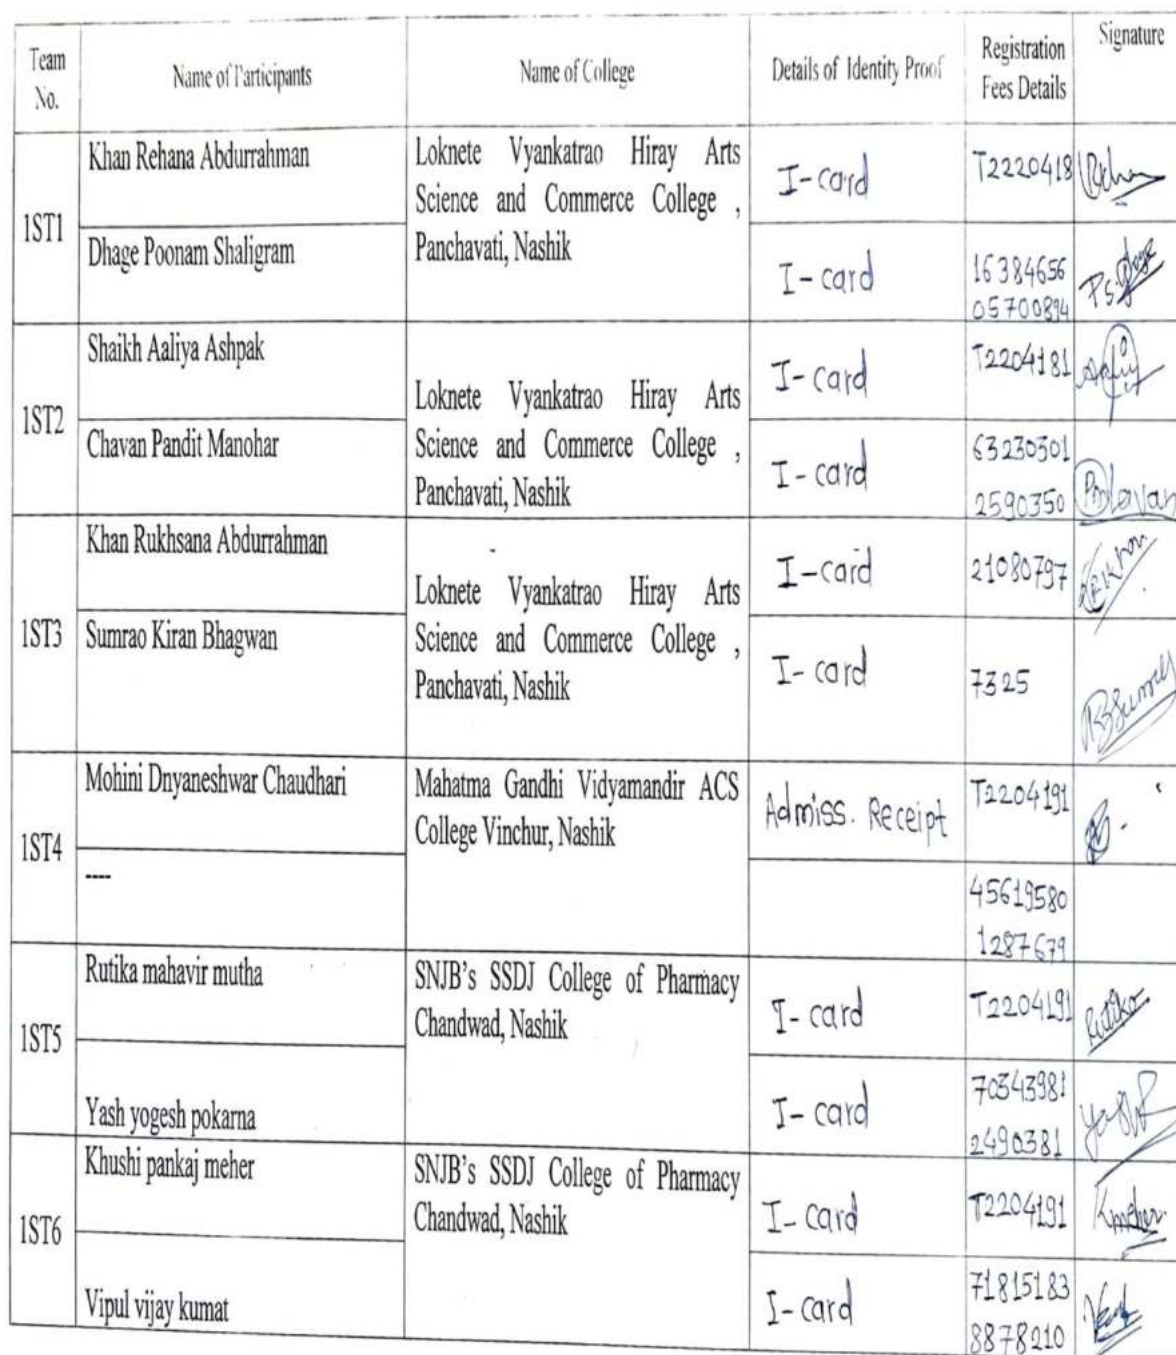 Team
No.
Name of Participants
Name of College
Details of Identity Proof
Registration
Fees Details
Signature
1ST1
Khan Rehana Abdurrahman
Loknete Vyankatrao Hiray Arts
Science and Commerce College ,
Panchavati, Nashik
I-card
T2220418
Dhage Poonam Shaligram
I-card
16384656
05700894
1ST2
Shaikh Aaliya Ashpak
Loknete Vyankatrao Hiray Arts
Science and Commerce College ,
Panchavati, Nashik
I-card
T2204181
Chavan Pandit Manohar
I-card
63230301
2590350
1ST3
Khan Rukhsana Abdurrahman
Loknete Vyankatrao Hiray Arts
Science and Commerce College ,
Panchavati, Nashik
I-card
21080797
Sumrao Kiran Bhagwan
I-card
7325
1ST4
Mohini Dnyaneshwar Chaudhari
Mahatma Gandhi Vidyamandir ACS
College Vinchur, Nashik
Admiss. Receipt
T2204191
----
45619580
1287679
1ST5
Rutika mahavir mutha
SNJB's SSDJ College of Pharmacy
Chandwad, Nashik
I-card
T2204191
Rutika
Yash yogesh pokarna
I-card
70343981
2490381
1ST6
Khushi pankaj meher
SNJB's SSDJ College of Pharmacy
Chandwad, Nashik
I-card
T2204191
Kmeher.
Vipul vijay kumat
I-card
71815183
8878210